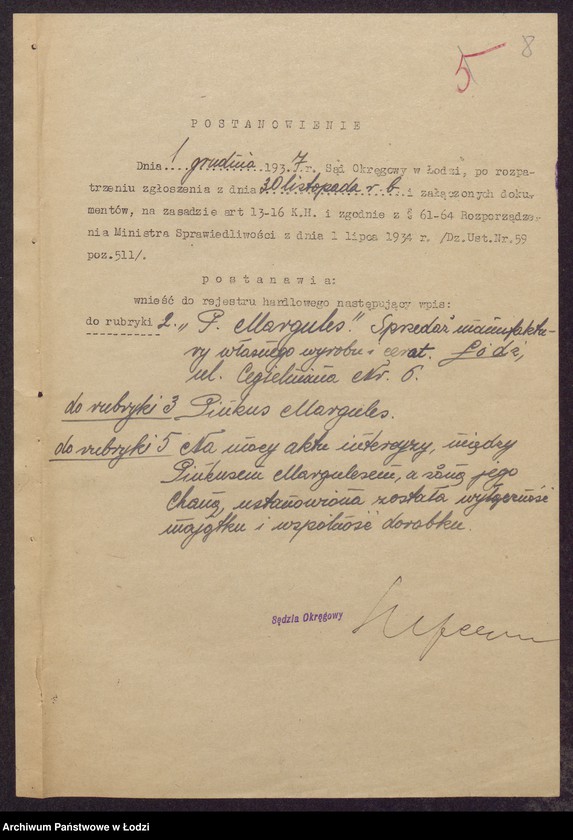 5 8
POSTANOWIENIE
Dnia 1 grudnia 1937 r. Sąd Okręgowy w Łodzi, po rozpa-
trzeniu zgłoszenia z dnia 20 listopada r. b. i załączonych doku-
mentów, na zasadzie art 13-16 K.H. i zgodnie z § 61-64 Rozporządze-
nia Ministra Sprawiedliwości z dnia 1 lipca 1934 r. /Dz.Ust.Nr.59
poz.511/.
postanawia:
wnieść do rejestru handlowego następujący wpis:
do rubryki 2. „P. Margules." Sprzedaż manufaktu-
ry własnego wyrobu i cerat. Łódź,
ul. Cegielniana Nr. 6.
do rubryki 3 Pinkus Margules.
do rubryki 5 Na mocy aktu intercyzy, między
Pinkusem Margulesem, a żoną jego
Chaną, ustanowiona została wyłączność
majątku i wspólność dorobku.
Sędzia Okręgowy
Archiwum Państwowe w Łodzi